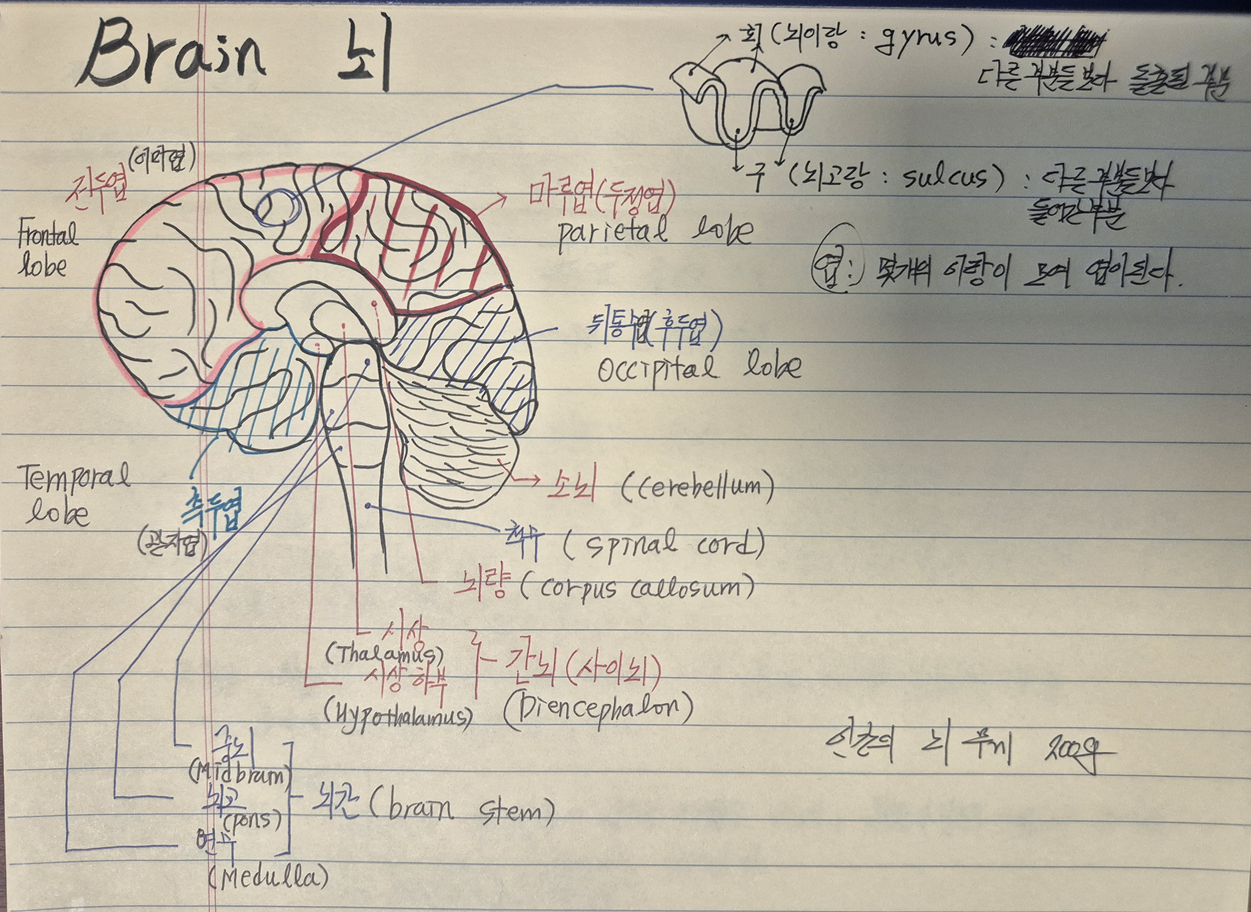 Brain 뇌
회 (뇌이랑 : gyrus) :
다른 부분들보다 돌출된 부분
구 (뇌고랑 : sulcus) : 다른 부분들보다
들어간 부분
엽 : 몇개의 이랑이 모여 엽이된다.
전두엽 (이마엽)
Frontal
lobe
마루엽(두정엽)
parietal lobe
뒤통수엽(후두엽)
Occipital lobe
Temporal
lobe
측두엽
(관자엽)
소뇌 (cerebellum)
척수 (spinal cord)
뇌량 (corpus callosum)
시상
(Thalamus)
시상하부
(Hypothalamus)
간뇌 (사이뇌)
(Diencephalon)
중뇌
(Midbrain)
뇌교
(pons)
연수
(Medulla)
뇌간 (brain stem)
인간의 뇌 무게 200g